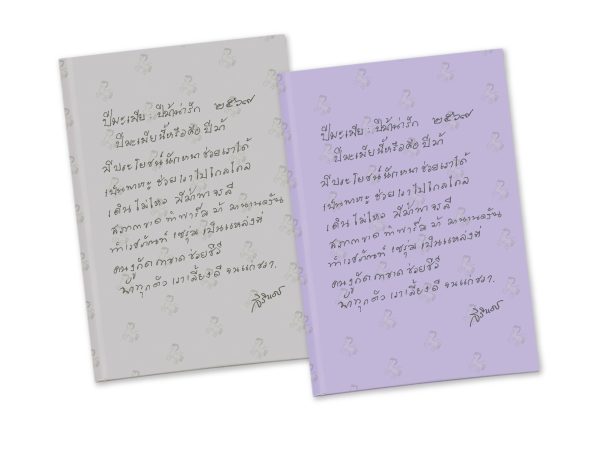 ปีมะเมีย : ปีม้าน่ารัก ๒๕๖๙
ปีมะเมียนี้หรือคือ ปีม้า
มีประโยชน์นักหนาช่วยเราได้
เป็นพาหะ ช่วยเราไปไกลไกล
เดินไม่ไหว มีม้าพาจรลี
สภากาชาด ทำฟาร์ม ม้า มานานครัน
ทำเวชภัณฑ์ เซรุ่ม เป็นแหล่งที่
คนงูกัด กาชาด ช่วยชีวี
ม้าทุกตัว เราเลี้ยงดี จนแก่ชรา.
สิรินธร
ปีมะเมีย : ปีม้าน่ารัก ๒๕๖๙
ปีมะเมียนี้หรือคือ ปีม้า
มีประโยชน์นักหนาช่วยเราได้
เป็นพาหะ ช่วยเราไปไกลไกล
เดินไม่ไหว มีม้าพาจรลี
สภากาชาด ทำฟาร์ม ม้า มานานครัน
ทำเวชภัณฑ์ เซรุ่ม เป็นแหล่งที่
คนงูกัด กาชาด ช่วยชีวี
ม้าทุกตัว เราเลี้ยงดี จนแก่ชรา.
สิรินธร